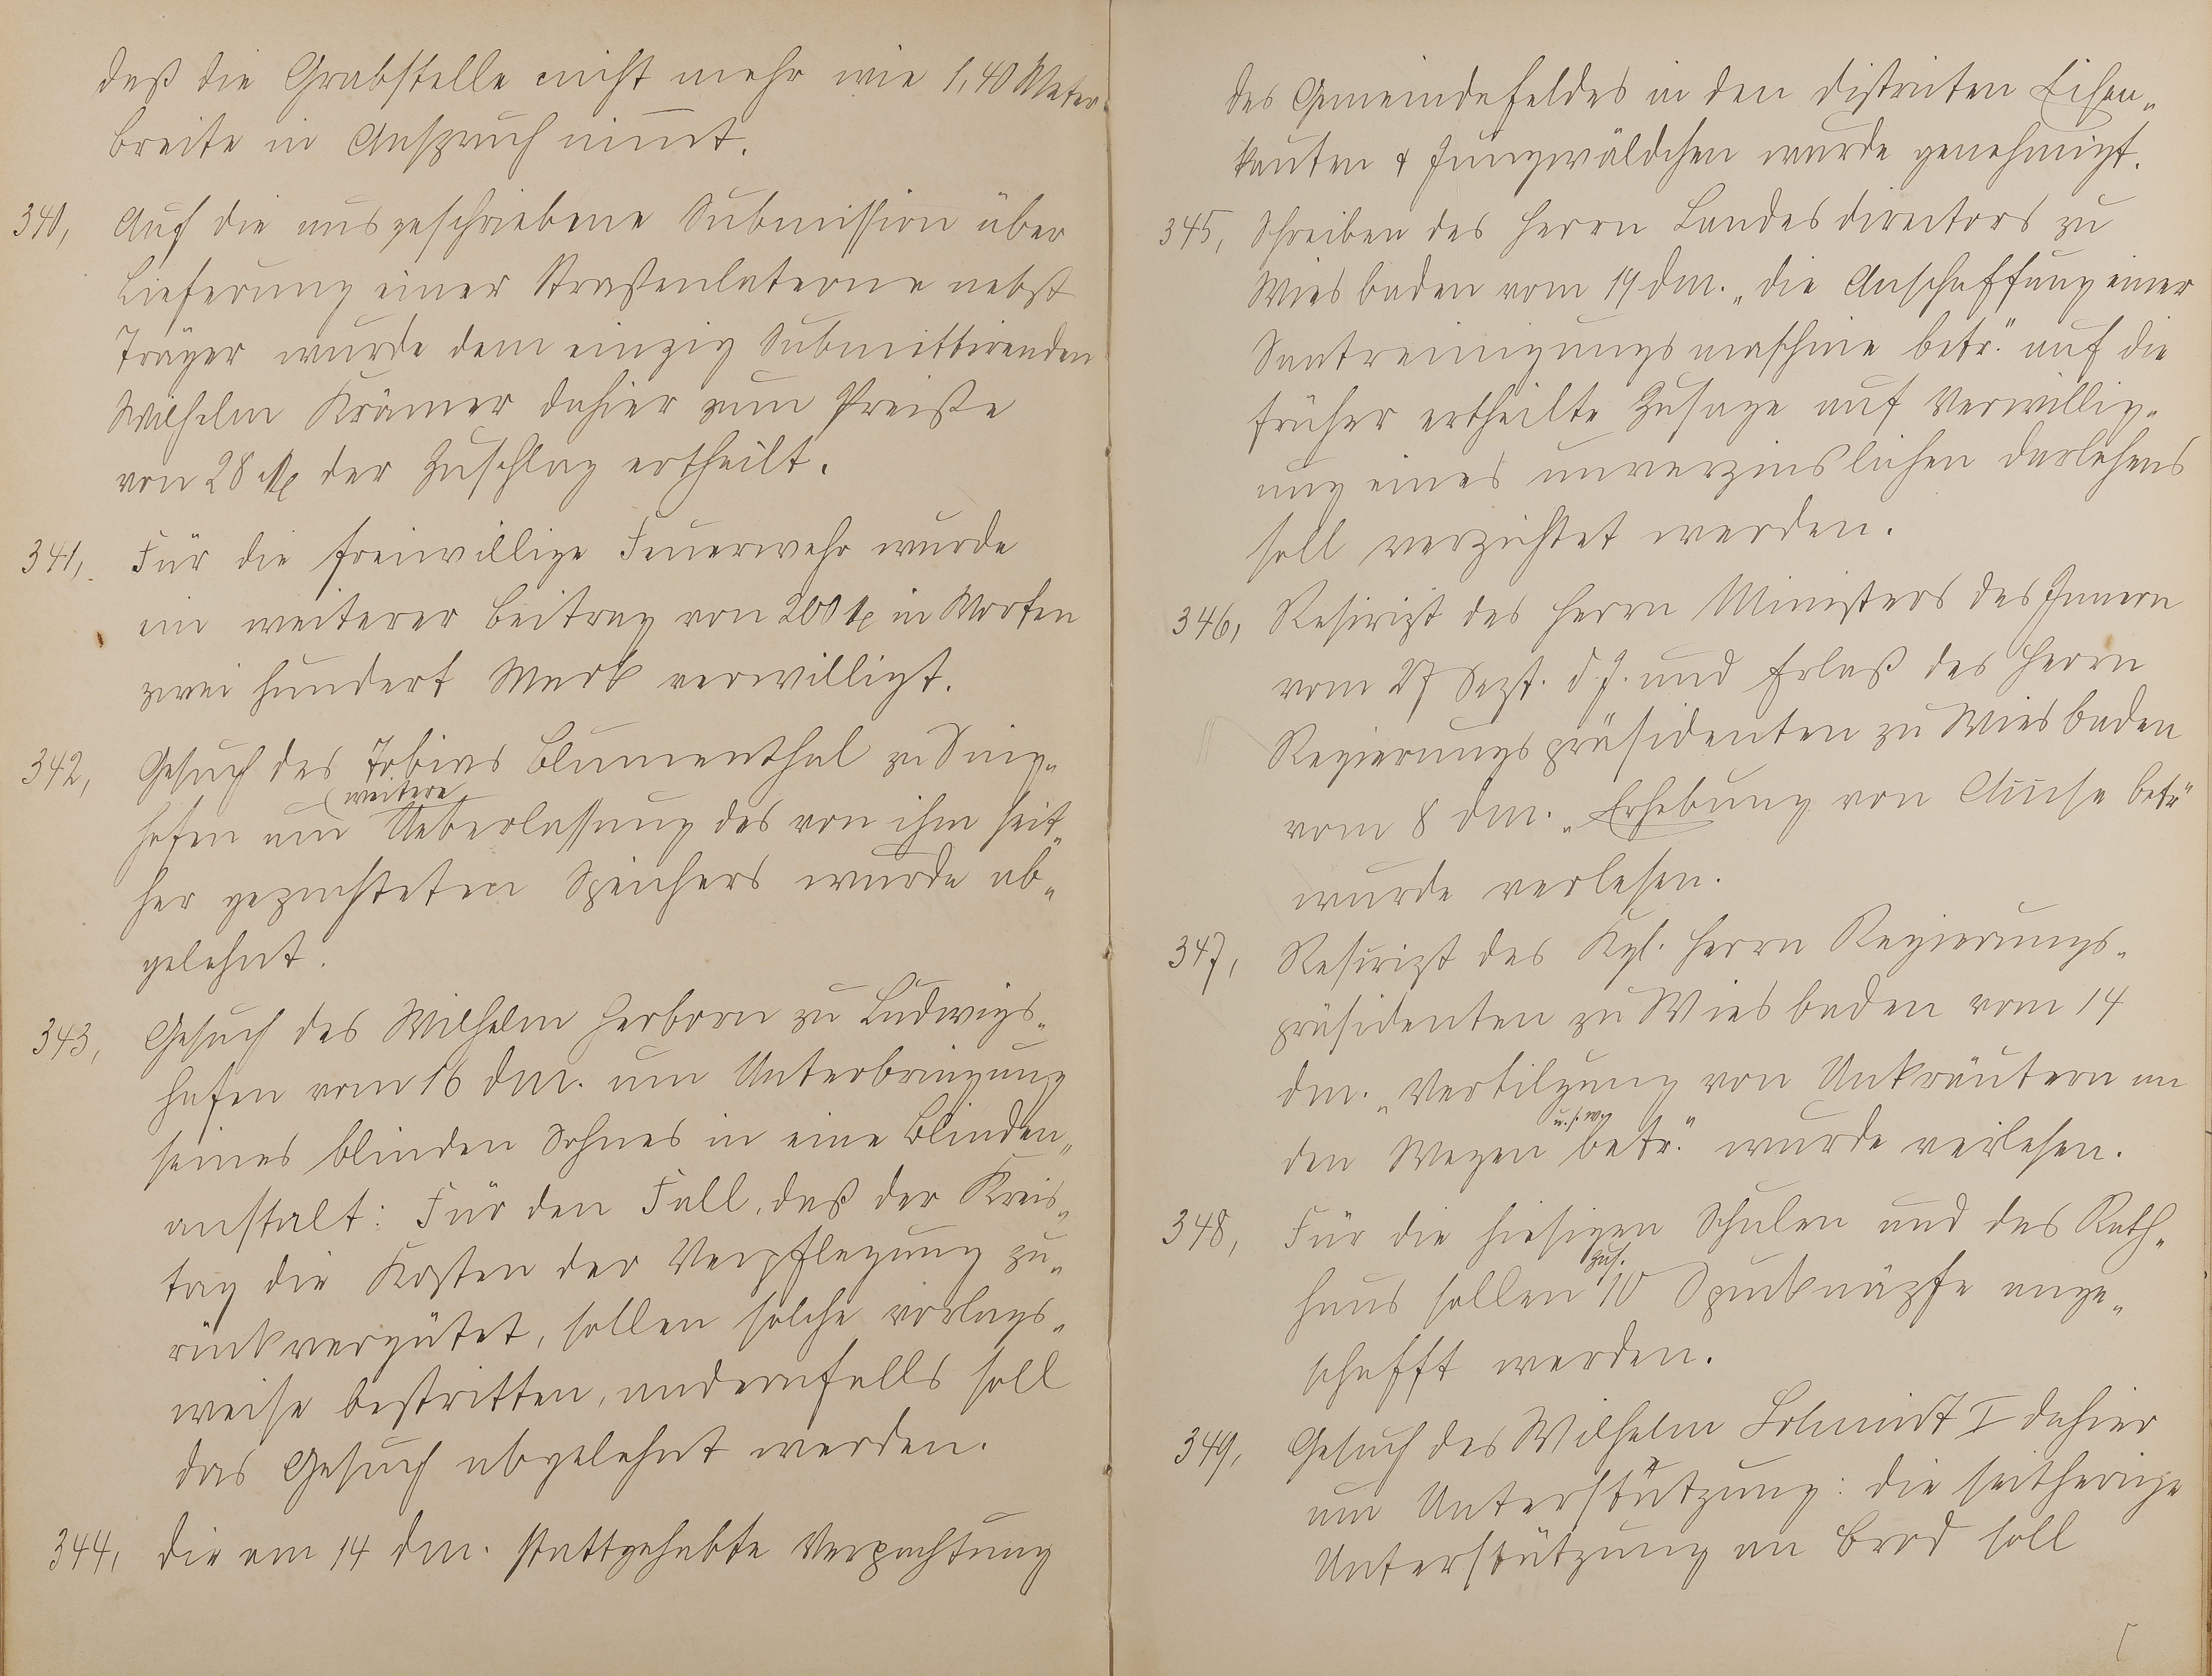 daß die Grabstelle nicht mehr wie 1,40 Meter
Breite in Anspruch nim̄t.
340, Auf die ausgeschriebene Submission über
Lieferung einer Straßenlaterne nebst
Träger wurde dem einzig Submittirenden
Wilhelm Krämer dahier zum Preiße
von 28 M der Zuschlag ertheilt.
341, Für die freiwillige Feuerwehr wurde
ein weiterer Beitrag von 200 M in Worten
zwei hundert Mark verwilligt.
342, Gesuch des Tobias Blumenthal zu Sing-
weitere
hofen um Ueberlassung des von ihm seit-
her gepachteten Speichers wurde ab-
gelehnt.
343, Gesuch des Wilhelm Herborn zu Ludwigs-
hafen vom 16 dm. um Unterbringung
seines blinden Sohnes in eine Blinden-
anstalt: Für den Fall, daß der Kreis-
tag die Kosten der Verpflegung zu-
rückvergütet, sollen solche vorlags-
weise bestritten, andernfalls soll
das Gesuch abgelehnt werden.
344, Die am 14 dm. stattgehabte Verpachtung
des Gemeindefeldes in den Distrikten Eisen-
kauten & Jungwäldchen wurde genehmigt.
345, Schreiben des Herrn Landesdirectors zu
Wiesbaden vom 19 dm. „die Anschaffung einer
Saatreinigungsmaschine betr." auf die
früher ertheilte Zusage auf Verwillig-
ung eines unverzinslichen Darlehens
soll verzichtet werden.
346, Rescript des Herrn Ministers des Innern
vom 27 Sept. d. J. und Erlaß des Herrn
Regierungspräsidenten zu Wiesbaden
vom 8 dm. „Erhebung von Accise betr"
wurde verlesen.
347, Rescript des Kgl. Herrn Regierungs-
präsidenten zu Wiesbaden vom 14
dm. „Vertilgung von Unkräutern an
u. s. w.
den Wegen betr." wurde verlesen.
348, Für die hiesigen Schulen und das Rath-
zus.
haus sollen 10 Spucknäpfe ange-
schafft werden.
349, Gesuch des Wilhelm Schmidt I dahier
um Unterstützung: die seitherige
Unterstützung an Brod soll